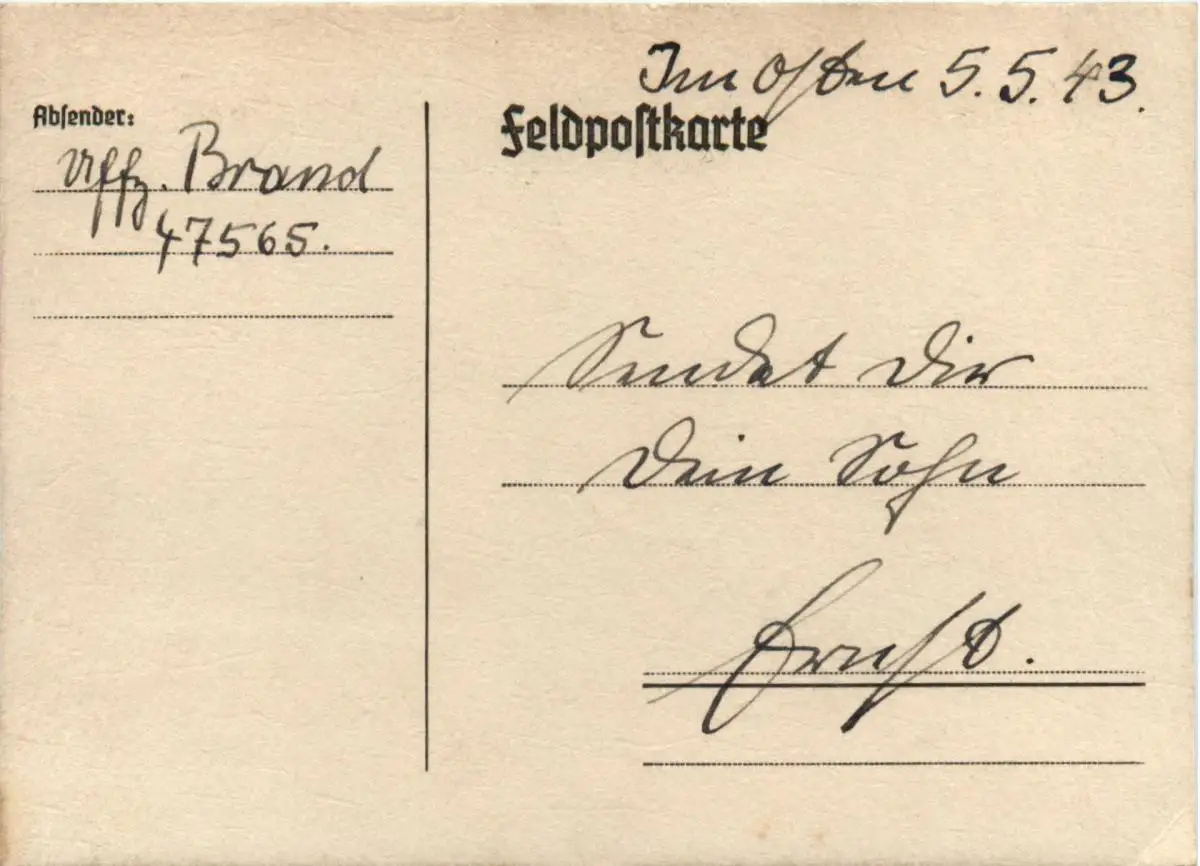 Im Osten 5.5.43.
Feldpostkarte
Absender:
Uffz. Brand
47565.
Sendet Dir
Dein Sohn
Ernst.